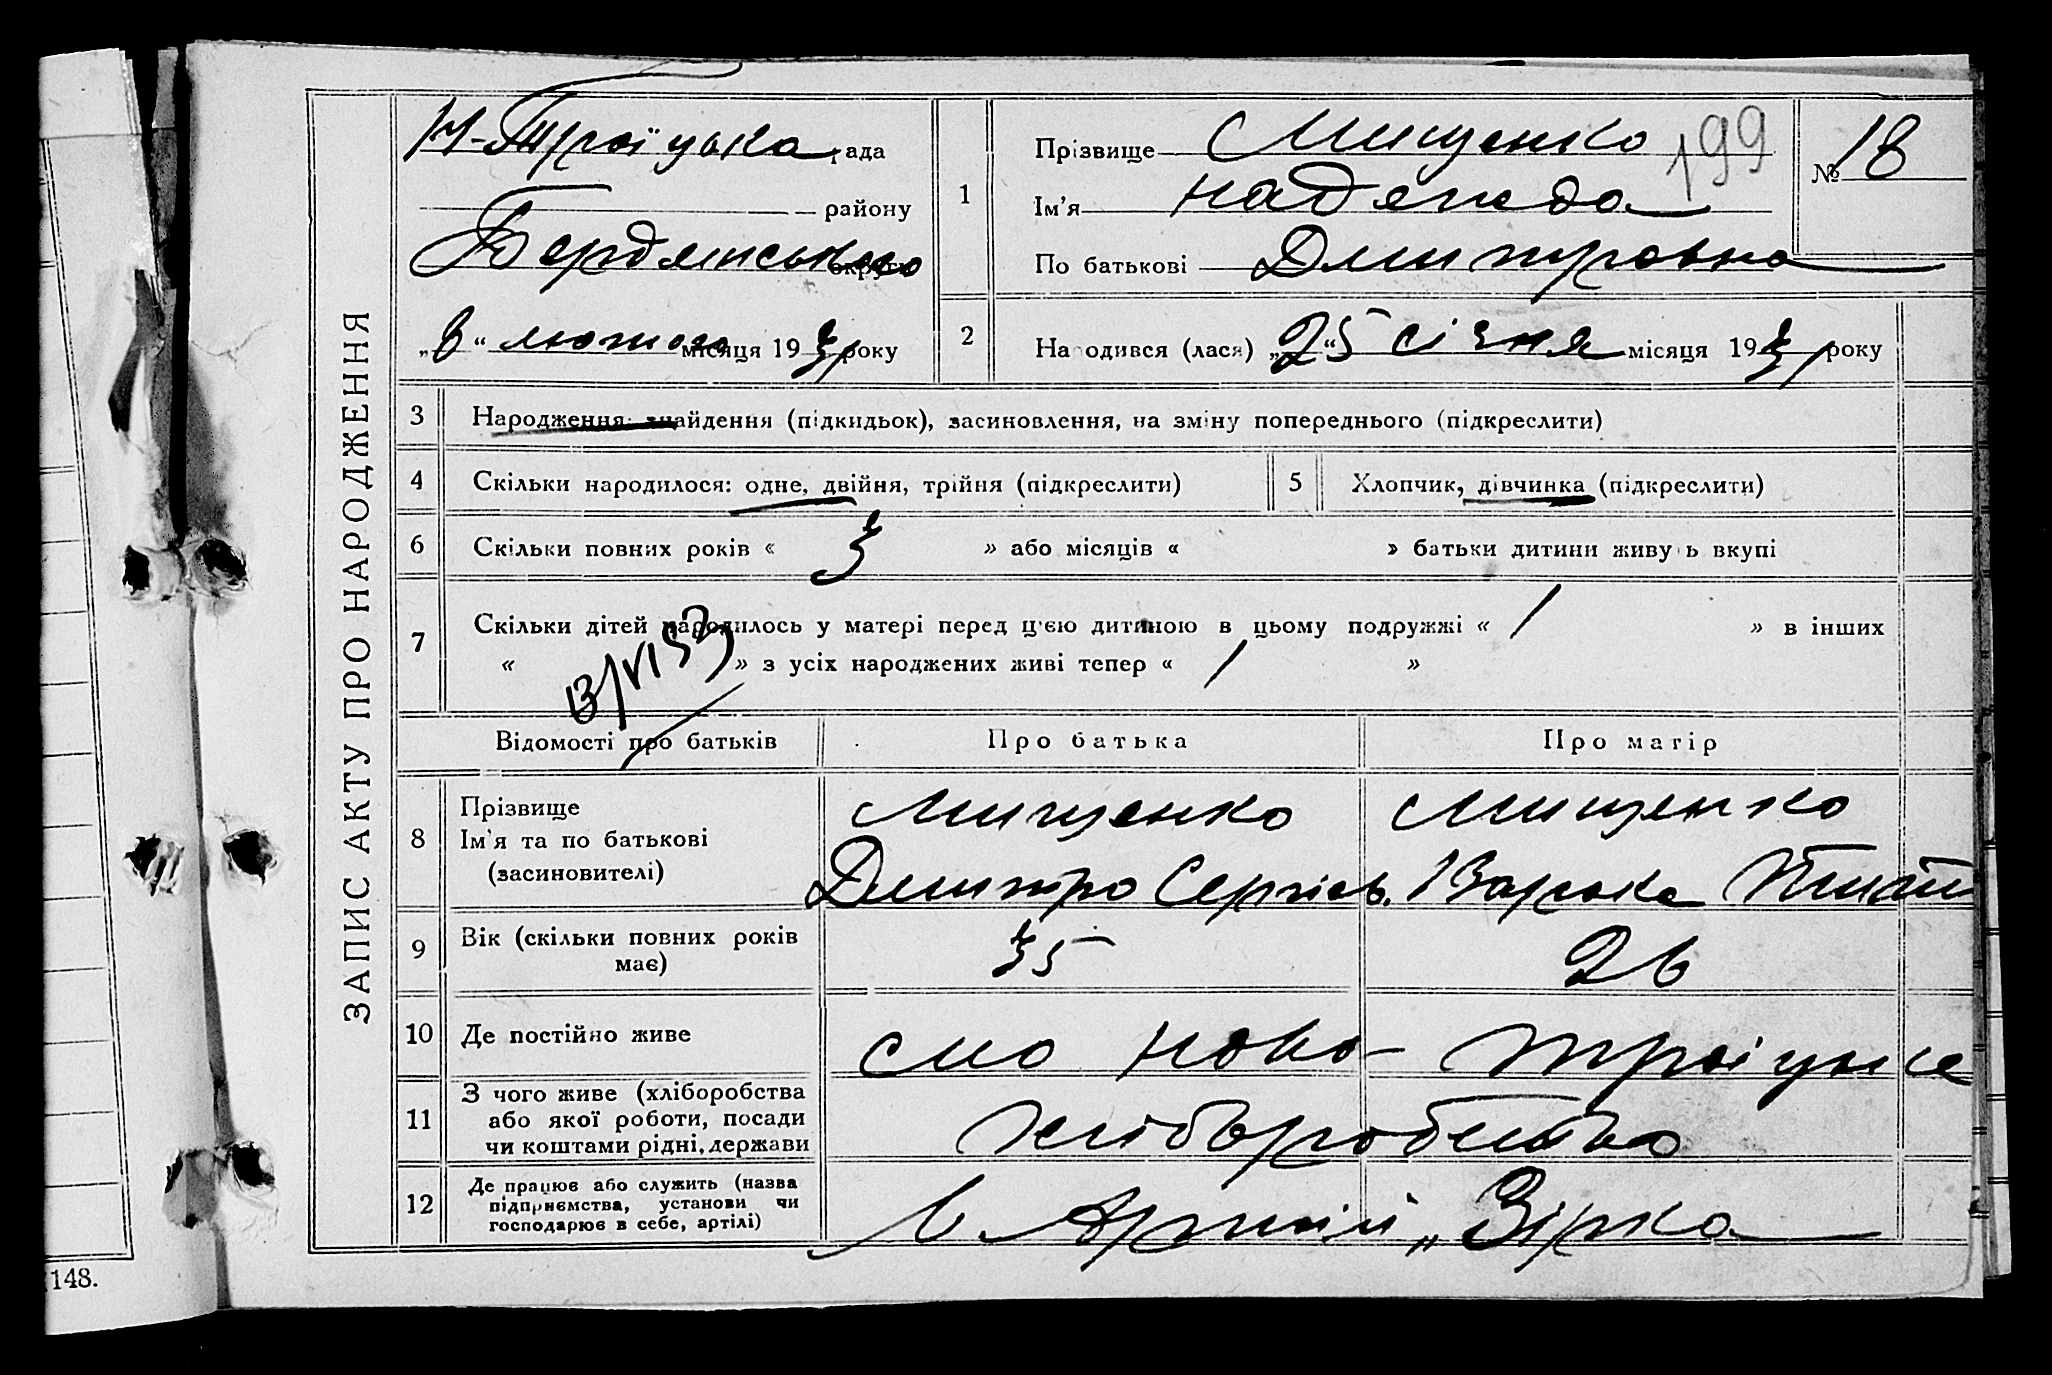 ЗАПИС АКТУ ПРО НАРОДЖЕННЯ
Н-Троїцька рада
району
Бердянського округи
„6“ лютого місяця 1931 року
1
Прізвище Мищенко
199
№ 18
Ім'я Надежда
По батькові Дмитровна
2
Народився (лася) „25“ січня місяця 1931 року
3 Народження, знайдення (підкидьок), засиновлення, на зміну попереднього (підкреслити)
4 Скільки народилося: одне, двійня, трійня (підкреслити)
5 Хлопчик, дівчинка (підкреслити)
6 Скільки повних років « 3 » або місяців « » батьки дитини живуть вкупі
7 Скільки дітей народилось у матері перед цією дитиною в цьому подружжі « 1 » в інших
« » з усіх народжених живі тепер « 1 »
13/VI 53
Відомості про батьків Про батька Про матір
8 Прізвище
Ім'я та по батькові
(засиновителі)
Мищенко
Дмитро Сергієв.
Мищенко
Варька
9 Вік (скільки повних років
має)
35
26
10 Де постійно живе
село Ново-Троїцьке
11 З чого живе (хліборобства
або якої роботи, посади
чи коштами рідні, держави
хліборобство
12 Де працює або служить (назва
підприємства, установи чи
господарює в себе, артілі)
в Артілі „Зірка
148.